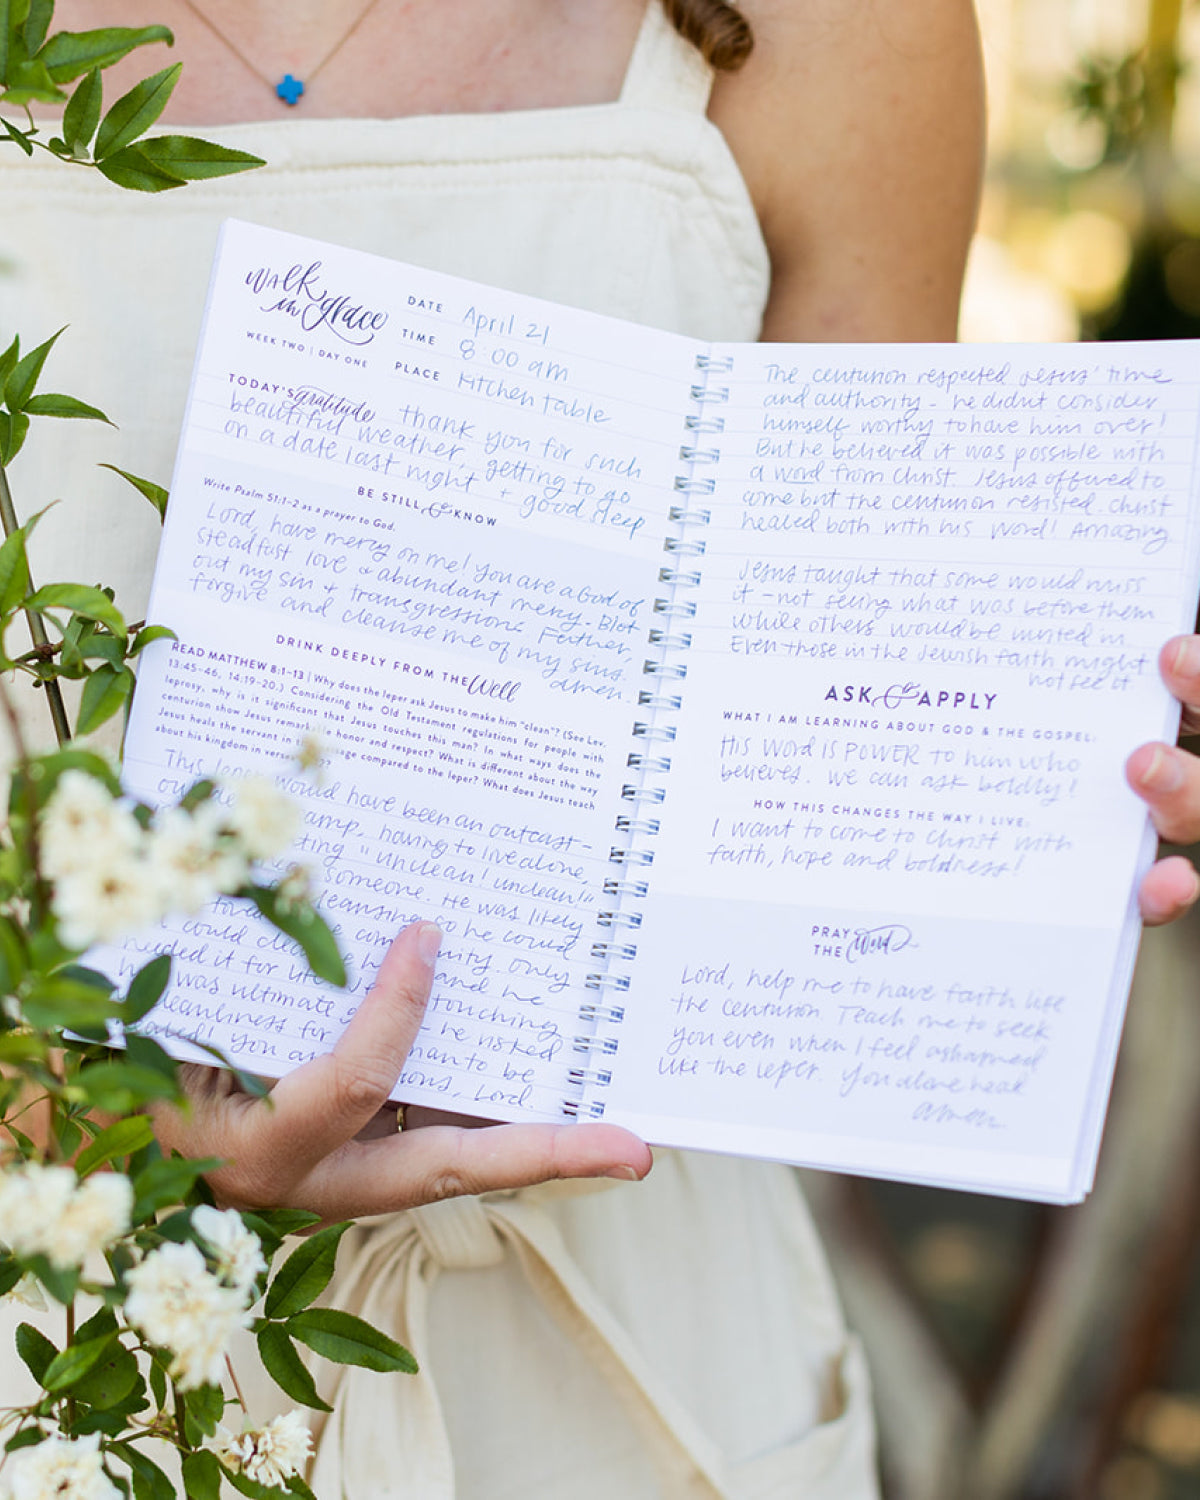 walk
in grace
WEEK TWO | DAY ONE
DATE April 21
TIME 8:00 am
PLACE Kitchen Table
TODAY'S gratitude Thank you for such
beautiful weather, getting to go
on a date last night + good sleep
BE STILL & KNOW
Write Psalm 51:1-2 as a prayer to God.
Lord, have mercy on me! You are a God of
steadfast love & abundant mercy. Blot
out my sin + transgressions. Father,
forgive and cleanse me of my sins.
amen.
DRINK DEEPLY FROM THE Well
READ MATTHEW 8:1-13 | Why does the leper ask Jesus to make him "clean"? (See Lev.
13:45-46, 14:19-20.) Considering the Old Testament regulations for people with
leprosy, why is it significant that Jesus touches this man? In what ways does the
centurion show Jesus remarkable honor and respect? What is different about the way
Jesus heals the servant in this passage compared to the leper? What does Jesus teach
about his kingdom in verses
This leper would have been an outcast-
camp, having to live alone,
"unclean! unclean!"
someone. He was likely
cleansing so he could
community. Only
could and he
needed it for touching
was ultimate he risked
cleanliness for man to be
healed! You are Lord.
The centurion respected Jesus' time
and authority - he didn't consider
himself worthy to have him over!
But he believed it was possible with
a word from Christ. Jesus offered to
come but the centurion resisted. Christ
healed both with his word! Amazing
Jesus taught that some would miss
it - not seeing what was before them
while others would be invited in.
Even those in the Jewish faith might
not see it.
ASK & APPLY
WHAT I AM LEARNING ABOUT GOD & THE GOSPEL:
His Word is POWER to him who
believes. We can ask boldly!
HOW THIS CHANGES THE WAY I LIVE:
I want to come to Christ with
faith, hope and boldness!
PRAY
THE Word
Lord, help me to have faith like
the centurion. Teach me to seek
you even when I feel ashamed
like the leper. You alone heal.
amen.